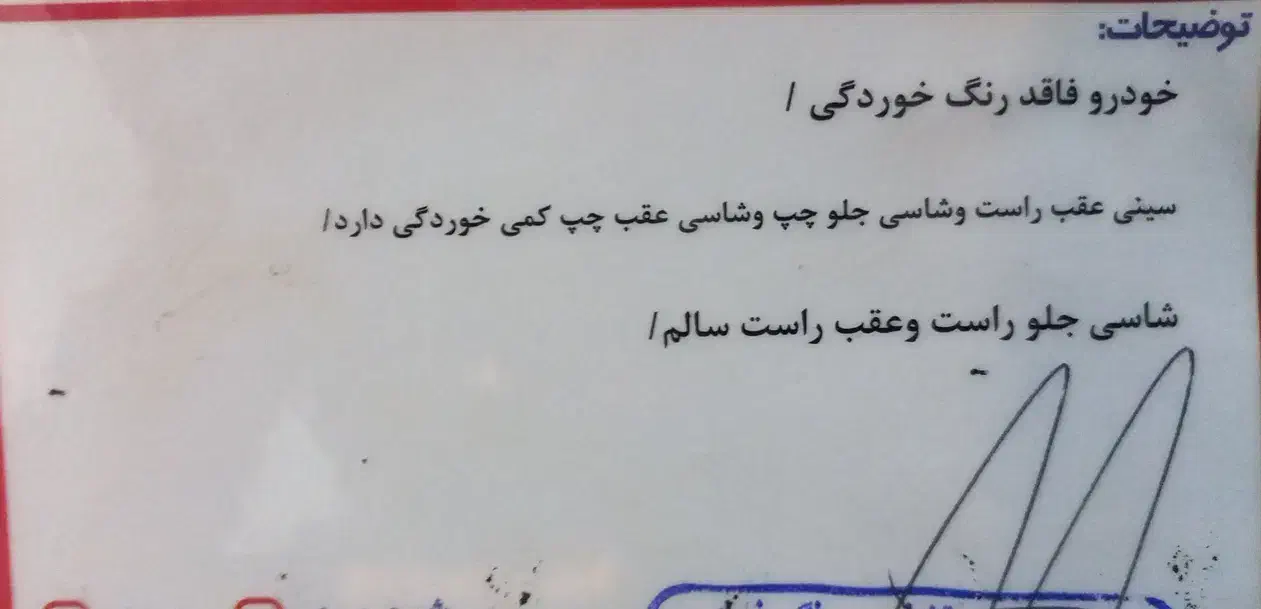 توضیحات:
خودرو فاقد رنگ خوردگی /
سینی عقب راست وشاسی جلو چپ وشاسی عقب چپ کمی خوردگی دارد/
شاسی جلو راست وعقب راست سالم/